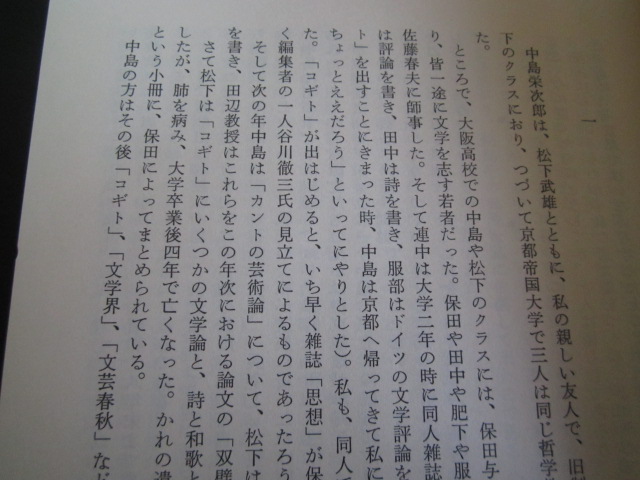 一
中島栄次郎は、松下武雄とともに、私の親しい友人で、旧制
下のクラスにおり、つづいて京都帝国大学で三人は同じ哲学
た。
ところで、大阪高校での中島や松下のクラスには、保田与
り、皆一途に文学を志す若者だった。保田や田中や肥下や服
佐藤春夫に師事した。そして連中は大学二年の時に同人雑誌
は評論を書き、田中は詩を書き、服部はドイツの文学評論を
ト」を出すことにきまった時、中島は京都へ帰ってきて私に
ちょっとええだろう」といってにやりとした)。私も、同人
た。「コギト」が出はじめると、いち早く雑誌「思想」が保
く編集者の一人谷川徹三氏の見立てによるものであったろう
そして次の年中島は「カントの芸術論」について、松下は
を書き、田辺教授はこれらをこの年次における論文の「双璧
さて松下は「コギト」にいくつかの文学論と、詩と和歌と
したが、肺を病み、大学卒業後四年で亡くなった。かれの遺
という小冊に、保田によってまとめられている。
中島の方はその後「コギト」、「文学界」、「文芸春秋」など